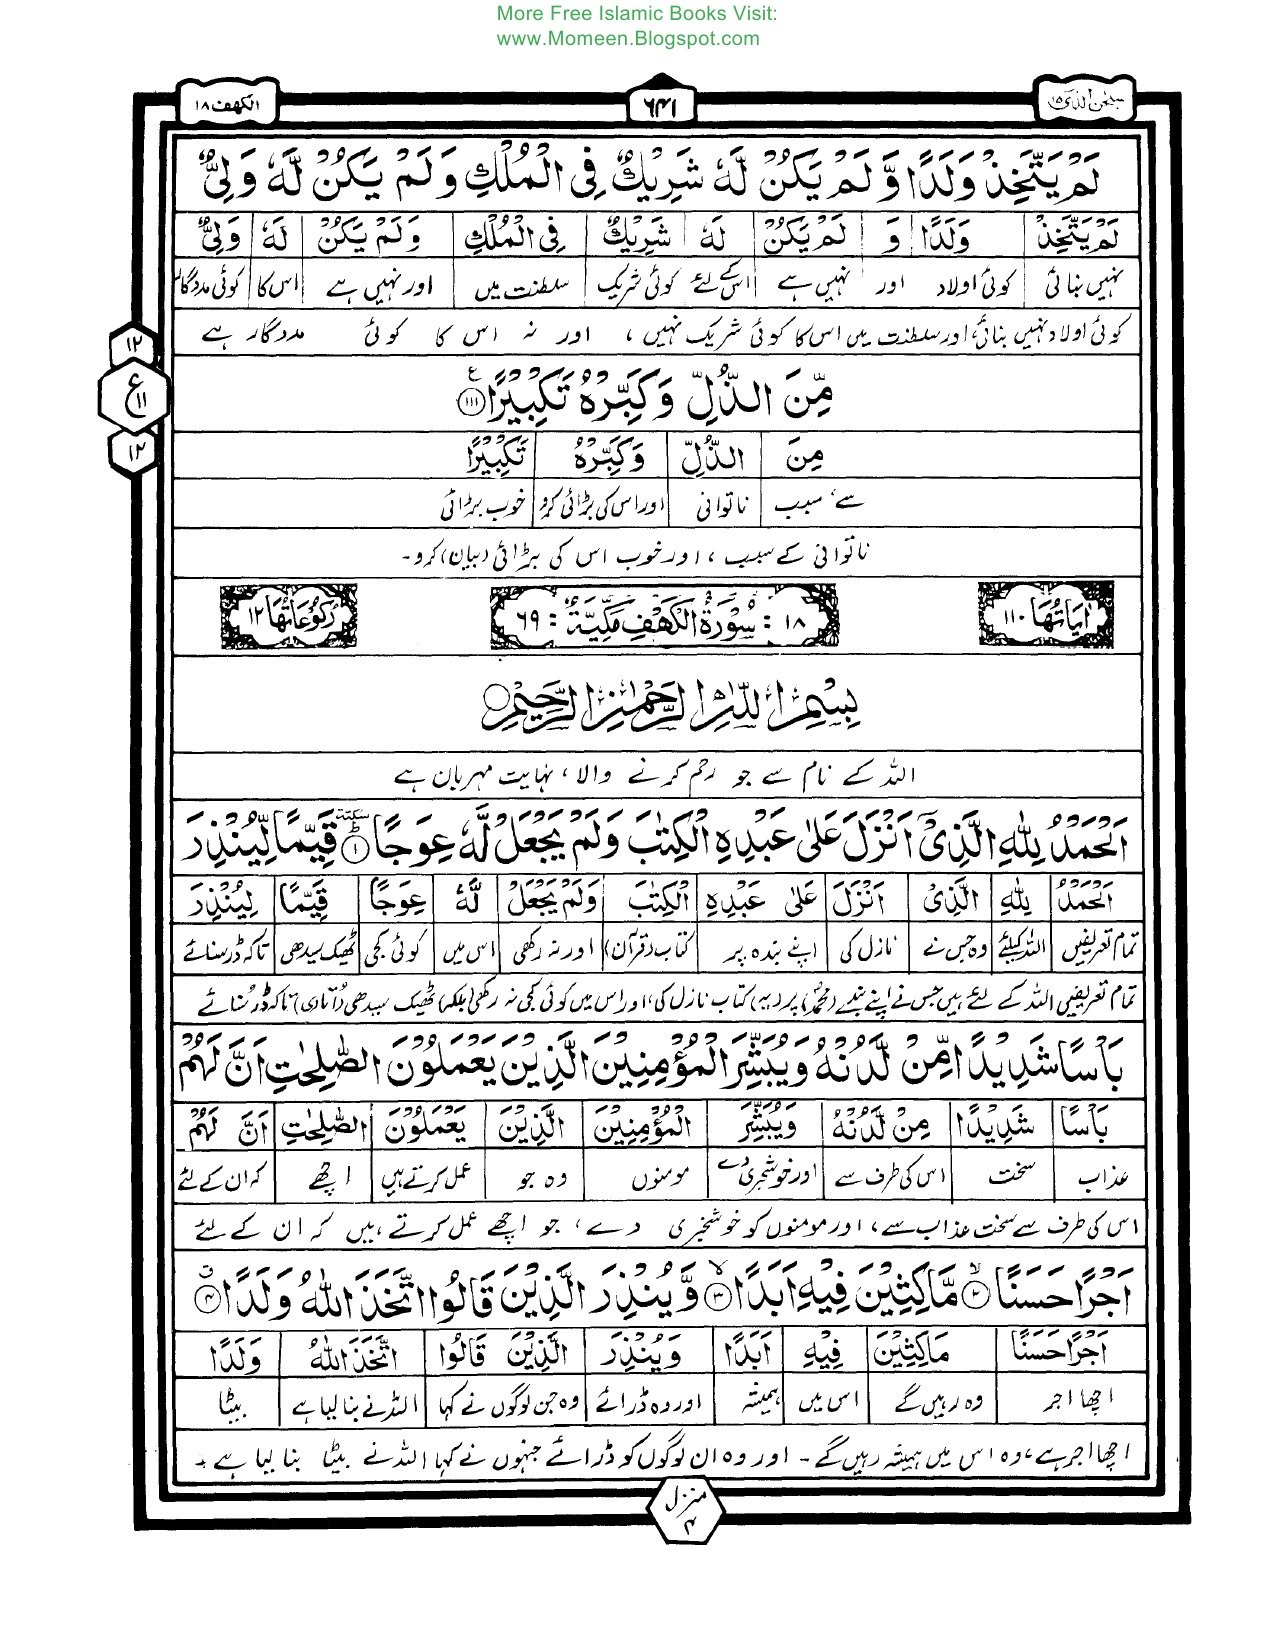 More Free Islamic Books Visit:
www.Momeen.Blogspot.com
سبحن الذی ۱۵
۶۴۱
الکهف ۱۸
لَمْ يَتَّخِذْ وَلَدًا وَّلَمْ يَكُنْ لَّهٗ شَرِيْكٌ فِى الْمُلْكِ وَلَمْ يَكُنْ لَّهٗ وَلِىٌّ
لَمْ يَتَّخِذْ وَلَدًا وَ لَمْ يَكُنْ لَهٗ شَرِيْكٌ فِى الْمُلْكِ وَلَمْ يَكُنْ لَهٗ وَلِىٌّ
نہیں بنائی کوئی اولاد اور نہیں ہے اس کے لئے کوئی شریک سلطنت میں اور نہیں ہے اس کا کوئی مددگار
کوئی اولاد نہیں بنائی، اور سلطنت میں اس کا کوئی شریک نہیں، اور نہ اس کا کوئی مددگار ہے
۱۲
ع
۱۱
۱۲
مِّنَ الذُّلِّ وَكَبِّرْهُ تَكْبِيْرًا ۱۱۱ ع
مِنَ الذُّلِّ وَكَبِّرْهُ تَكْبِيْرًا
سے، سبب ناتوانی اور اس کی بڑائی کرو خوب بڑائی
ناتوانی کے سبب، اور خوب اس کی بڑائی (بیان) کرو۔
اٰيَاتُهَا ۱۱۰
۱۸ : سُوْرَةُ الْكَهْفِ مَكِّيَّةٌ : ۶۹
رُكُوْعَاتُهَا ۱۲
بِسْمِ اللّٰهِ الرَّحْمٰنِ الرَّحِيْمِ
اللہ کے نام سے جو رحم کرنے والا، نہایت مہربان ہے
اَلْحَمْدُ لِلّٰهِ الَّذِىْٓ اَنْزَلَ عَلٰى عَبْدِهِ الْكِتٰبَ وَلَمْ يَجْعَلْ لَّهٗ عِوَجًا ۱ سكتة قَيِّمًا لِّيُنْذِرَ
اَلْحَمْدُ لِلّٰهِ الَّذِىْ اَنْزَلَ عَلٰى عَبْدِهِ الْكِتٰبَ وَلَمْ يَجْعَلْ لَّهٗ عِوَجًا قَيِّمًا لِيُنْذِرَ
تمام تعریفیں اللہ کیلئے وہ جس نے نازل کی اپنے بندہ پر کتاب (قرآن) اور نہ رکھی اس میں کوئی کجی ٹھیک سیدھی تاکہ ڈر سنائے
تمام تعریفیں اللہ کے لئے ہیں جس نے اپنے بندے (محمدؐ) پر (یہ) کتاب نازل کی، اور اس میں کوئی کجی نہ رکھی (بلکہ) ٹھیک سیدھی (اُتاری) تاکہ ڈر سُنائے
بَاْسًا شَدِيْدًا مِّنْ لَّدُنْهُ وَيُبَشِّرَ الْمُؤْمِنِيْنَ الَّذِيْنَ يَعْمَلُوْنَ الصّٰلِحٰتِ اَنَّ لَهُمْ
بَاْسًا شَدِيْدًا مِنْ لَّدُنْهُ وَيُبَشِّرَ الْمُؤْمِنِيْنَ الَّذِيْنَ يَعْمَلُوْنَ الصّٰلِحٰتِ اَنَّ لَهُمْ
عذاب سخت اس کی طرف سے اور خوشخبری دے مومنوں وہ جو عمل کرتے ہیں اچھے کہ ان کے لئے
اس کی طرف سے سخت عذاب سے، اور مومنوں کو خوشخبری دے، جو اچھے عمل کرتے ہیں کہ ان کے لئے
اَجْرًا حَسَنًا ۲ مَّاكِثِيْنَ فِيْهِ اَبَدًا ۳ وَّيُنْذِرَ الَّذِيْنَ قَالُوا اتَّخَذَ اللّٰهُ وَلَدًا ۴
اَجْرًا حَسَنًا مَاكِثِيْنَ فِيْهِ اَبَدًا وَيُنْذِرَ الَّذِيْنَ قَالُوا اتَّخَذَ اللّٰهُ وَلَدًا
اچھا اجر وہ رہیں گے اس میں ہمیشہ اور وہ ڈرائے وہ جن لوگوں نے کہا اللہ نے بنا لیا ہے بیٹا
اچھا اجر ہے، وہ اس میں ہمیشہ رہیں گے۔ اور وہ ان لوگوں کو ڈرائے جنہوں نے کہا اللہ نے بیٹا بنا لیا ہے۔
منزل
۴